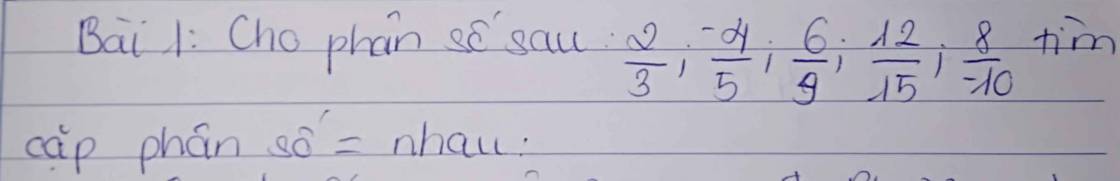 Bài 1: Cho phân số sau: 2/3; -4/5; 6/9; 12/15; 8/-10 tìm
cặp phân số = nhau: